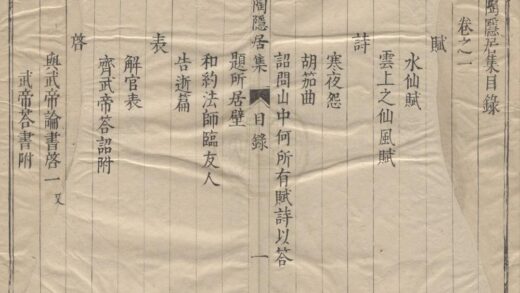 陶隱居集目錄
卷之一
賦
水仙賦
雲上之仙風賦
詩
寒夜怨
胡笳曲
詔問山中何所有賦詩以答
陶隱居集 目錄 一
題所居壁
和約法師臨友人
告逝篇
表
解官表
齊武帝答詔附
啓
與武帝論書啓一 又
武帝答書附